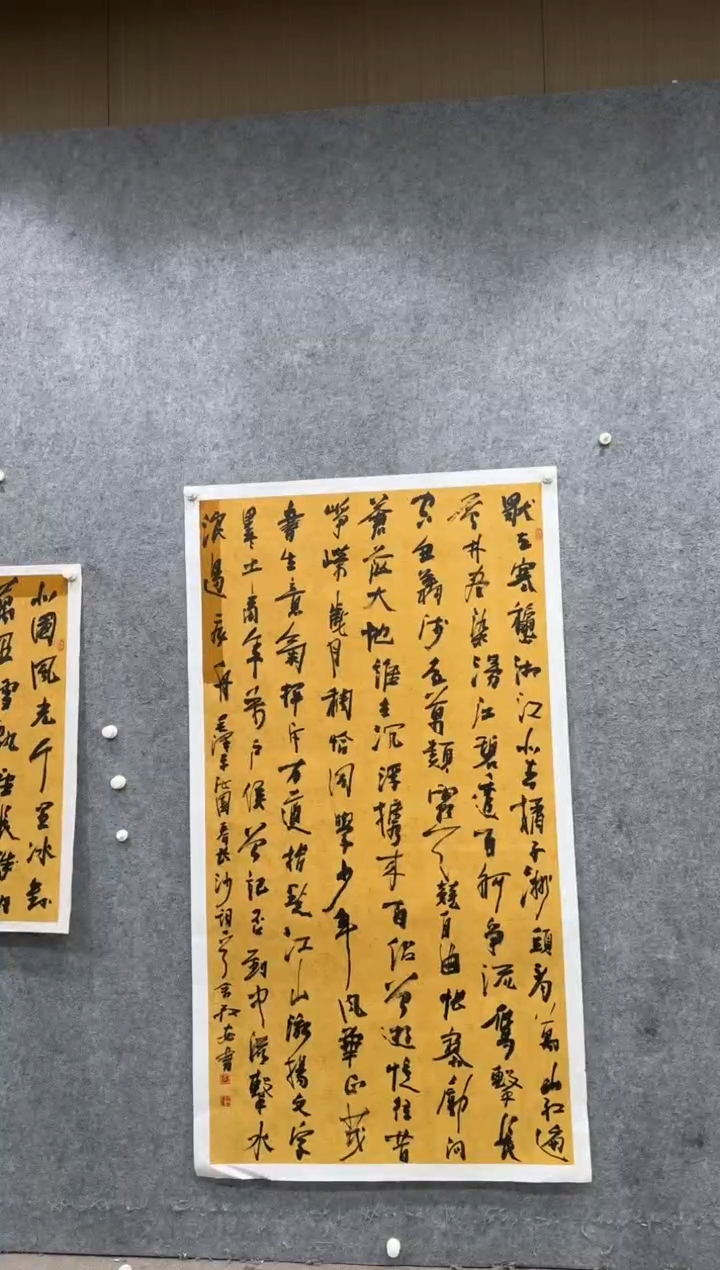 獨立寒穐湘江北去橘子洲頭看萬山紅遍
層林盡染漫江碧透百舸爭流鷹擊長
空魚翔淺底萬類霜天競自由悵寥廓問
蒼茫大地誰主沉浮攜來百侶曾遊憶往昔
崢嶸歲月稠恰同學少年風華正茂
書生意氣揮斥方遒指點江山激揚文字
糞土當年萬戶侯曾記否到中流擊水
浪遏飛舟 毛澤東沁園春長沙詞 書
北國風光千里冰封
萬里雪飄望長城